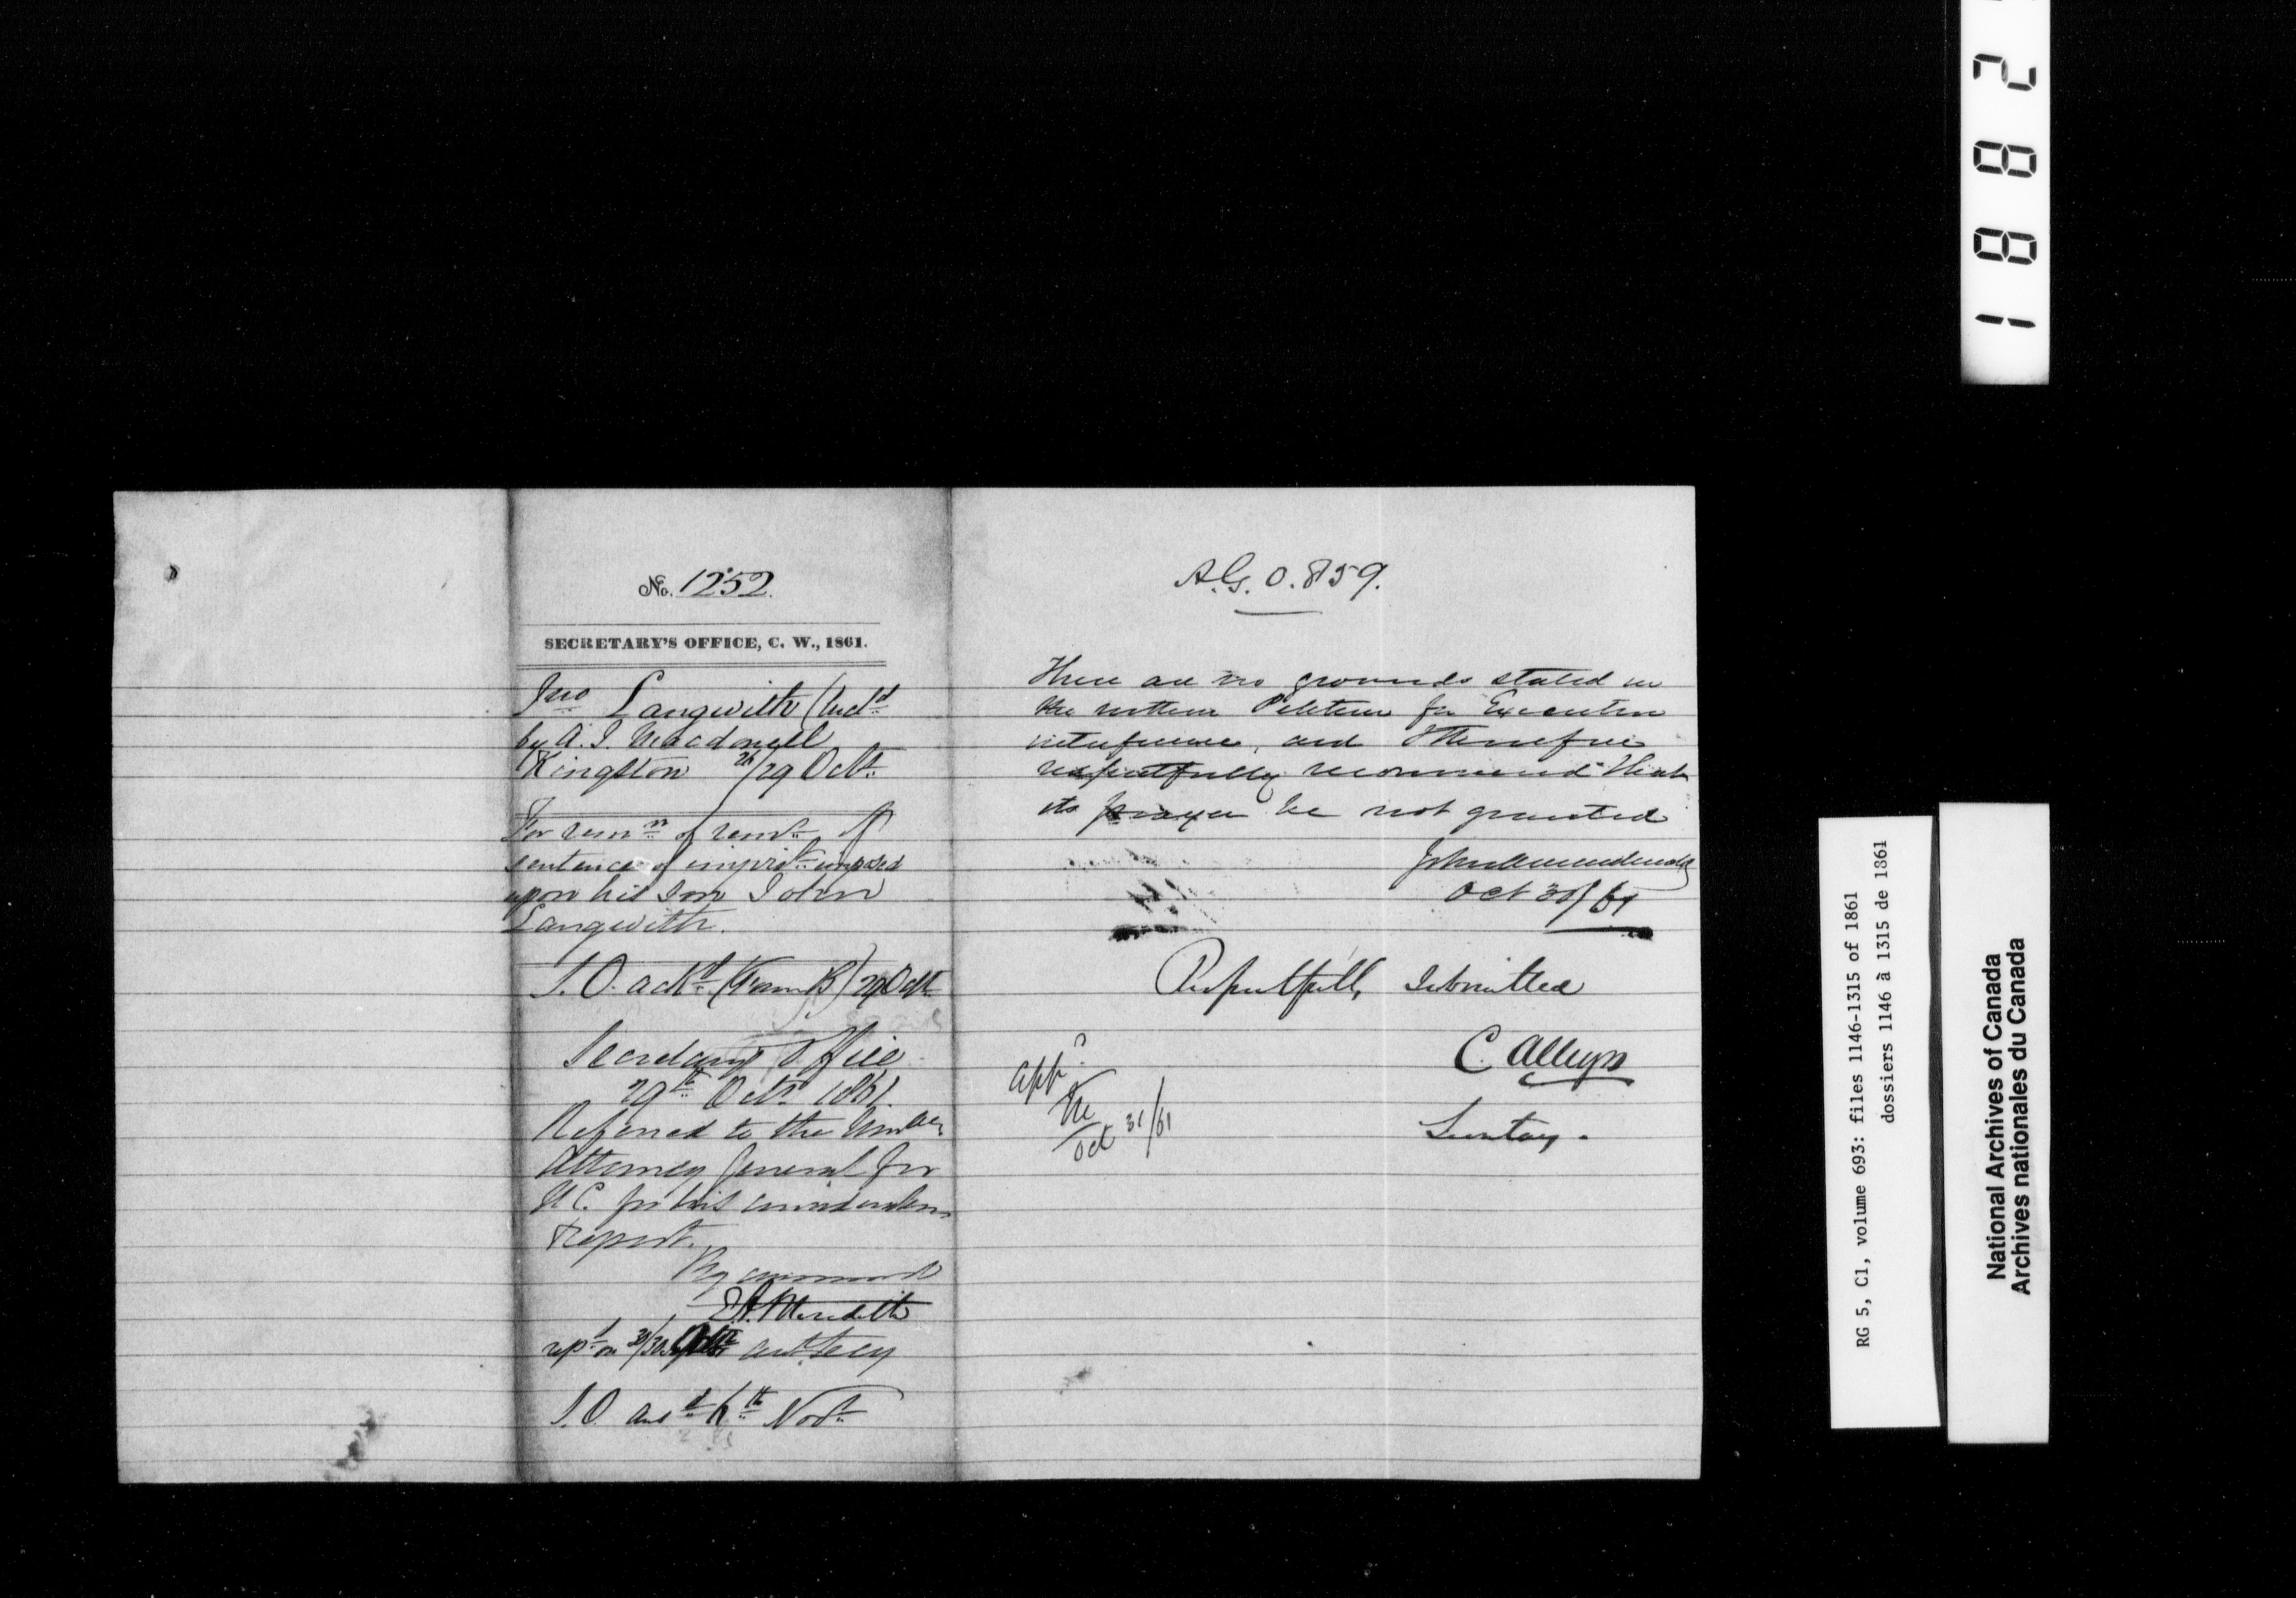 No. 1252.
SECRETARY'S OFFICE, C. W., 1861.
Jno Langwith (incld
by A. J. Macdonell
Kingston 26/29 Octr
For remn of remr of
sentence of imprist imposed
upon his son John
Langwith.
S.O. ackd (Form B) 29 Octr
Secretary's Office
29th Octr 1861.
Referred to the Honble
Attorney General for
U.C. for his consideration
& report.
By command
E.A. Meredith
repd on 30/30 Octr asst secy
S.O. ansd 6th Novr
A.G. O. 859.
There are no grounds stated in
the within Petition for Executive
interference, and I therefore
respectfully recommend that
its prayer be not granted
John A Macdonald
Oct 30/61
Respectfully submitted
C. Alleyn
Secretary.
appd
Oct 31/61
1882
RG 5, C1, volume 693: files 1146-1315 of 1861
dossiers 1146 à 1315 de 1861
National Archives of Canada
Archives nationales du Canada